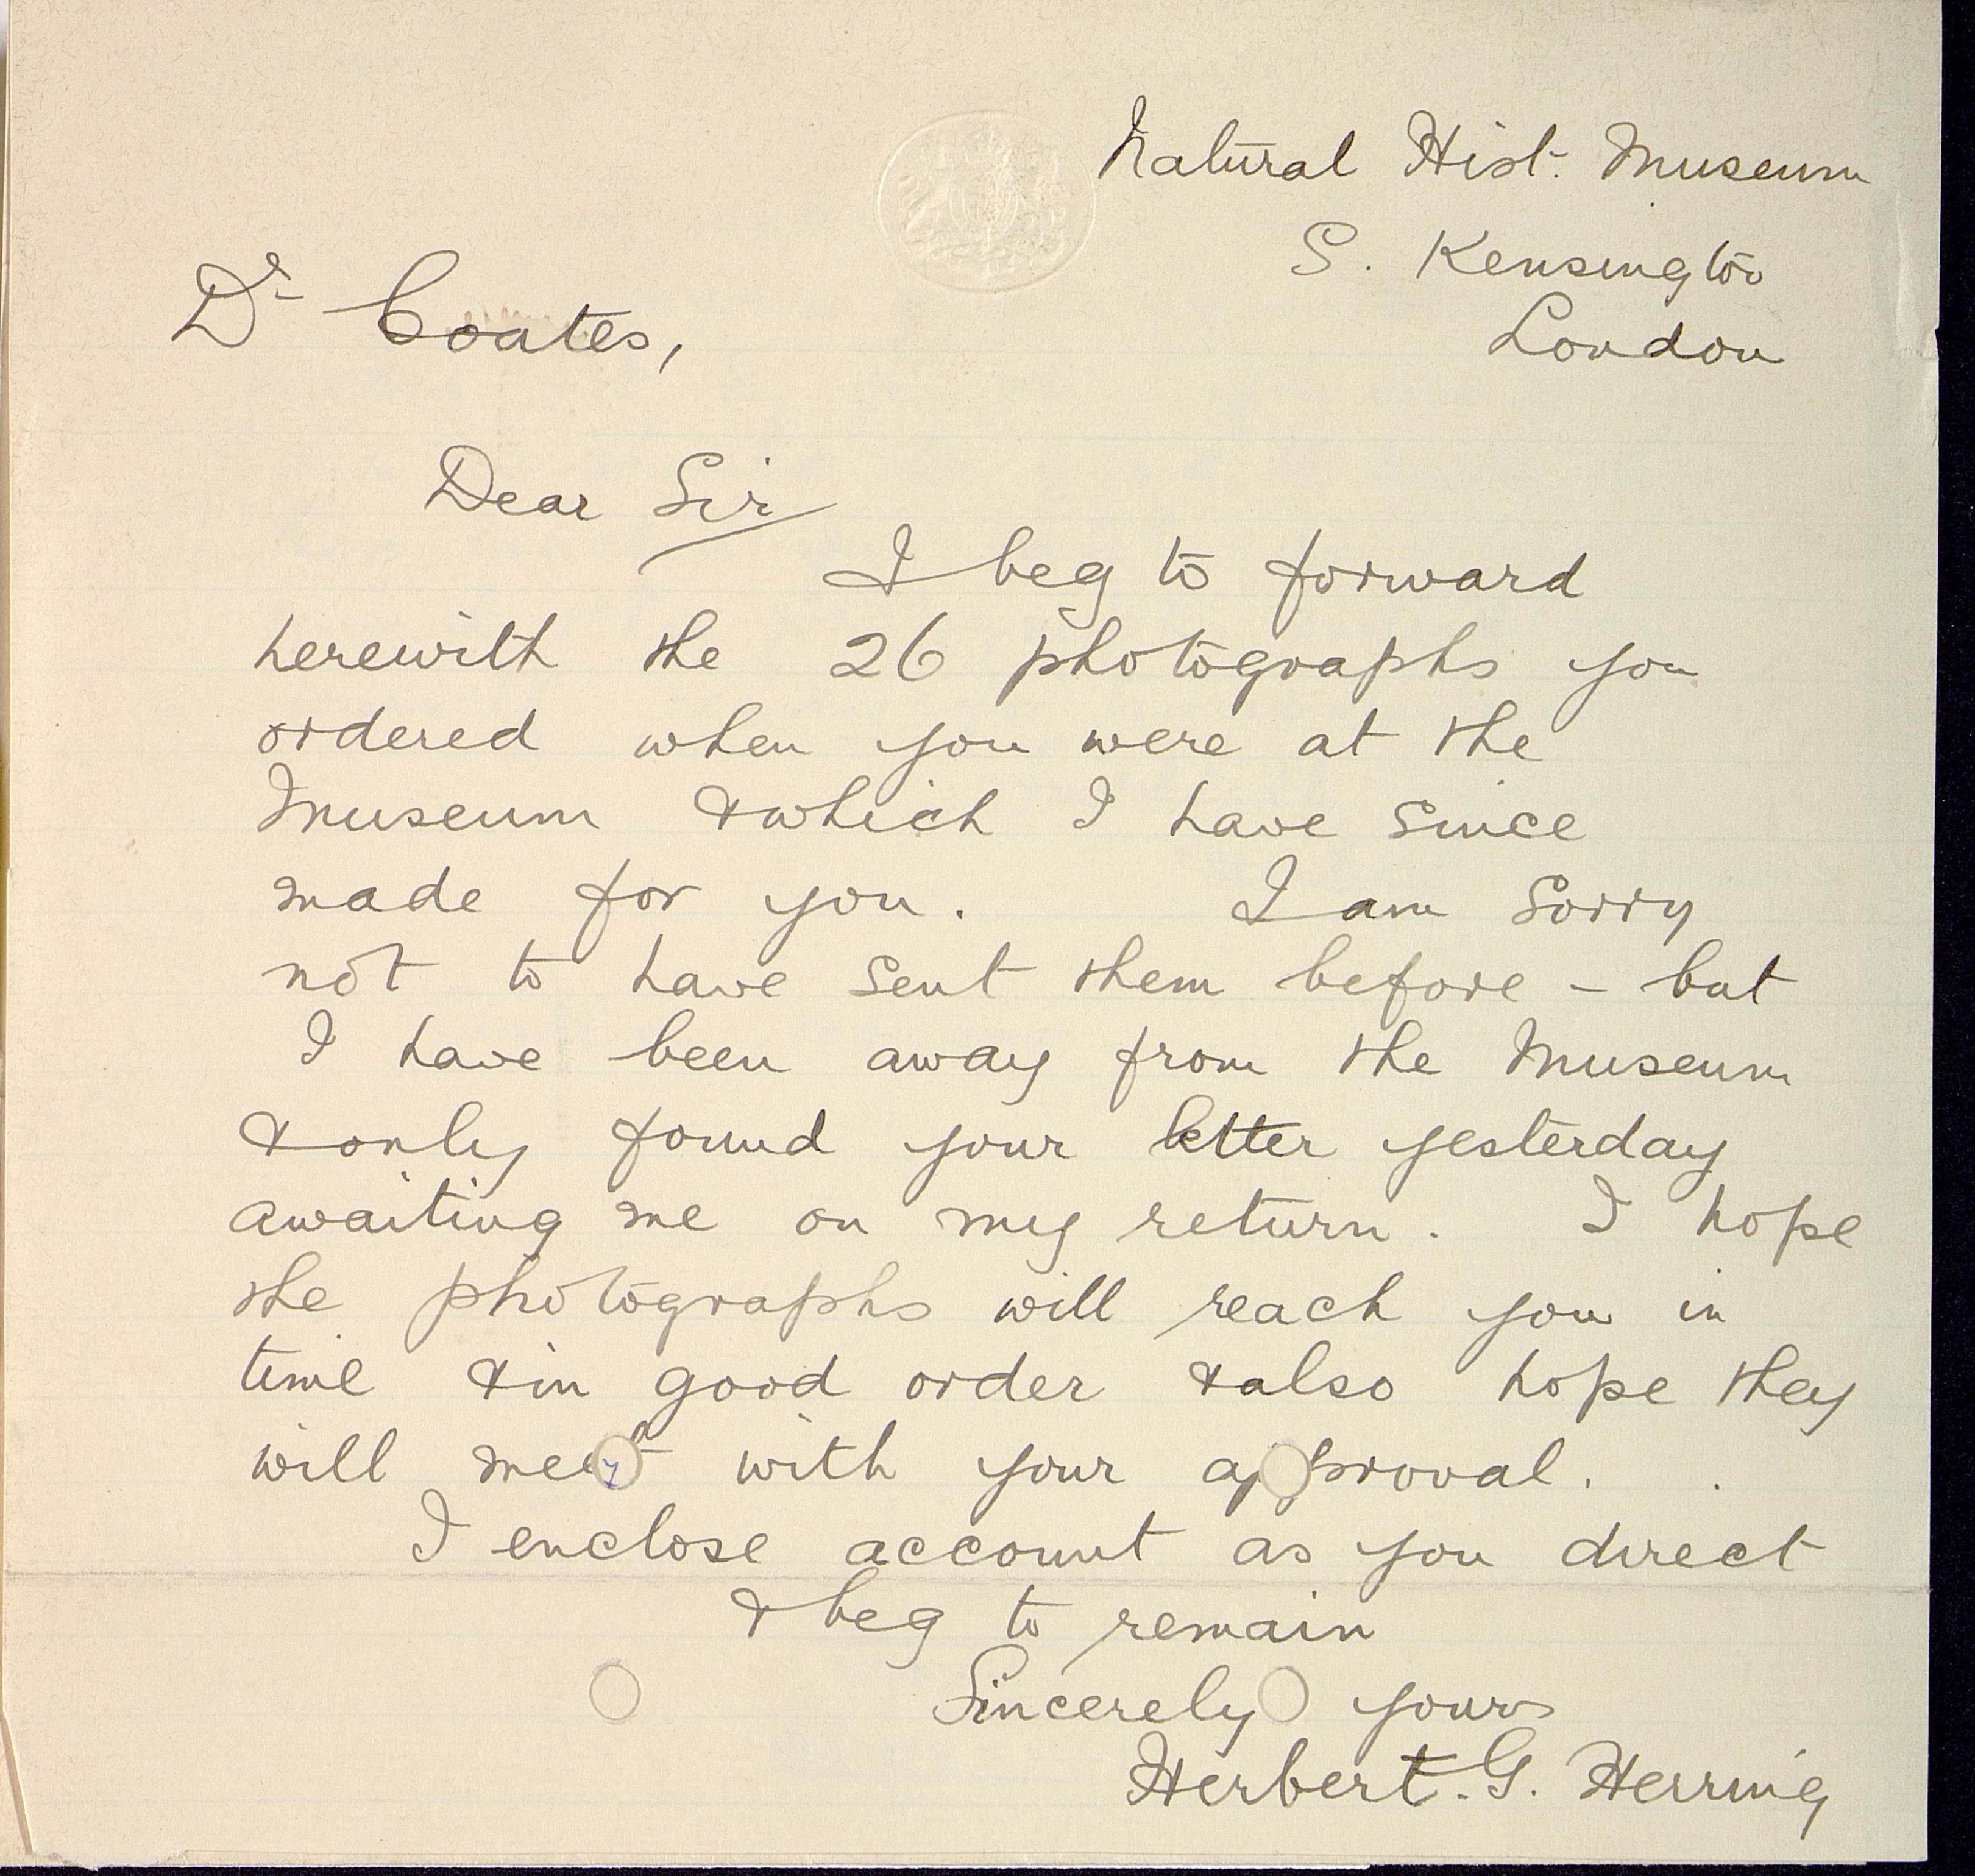 Natural Hist. Museum
S. Kensington
London
Dr Coates,
Dear Sir
I beg to forward
herewith the 26 photographs you
ordered when you were at the
Museum & which I have since
made for you. I am sorry
not to have sent them before - but
I have been away from the Museum
& only found your letter yesterday
awaiting me on my return. I hope
the photographs will reach you in
time & in good order & also hope they
will meet with your approval.
I enclose account as you direct
& beg to remain
Sincerely yours
Herbert. G. Herring